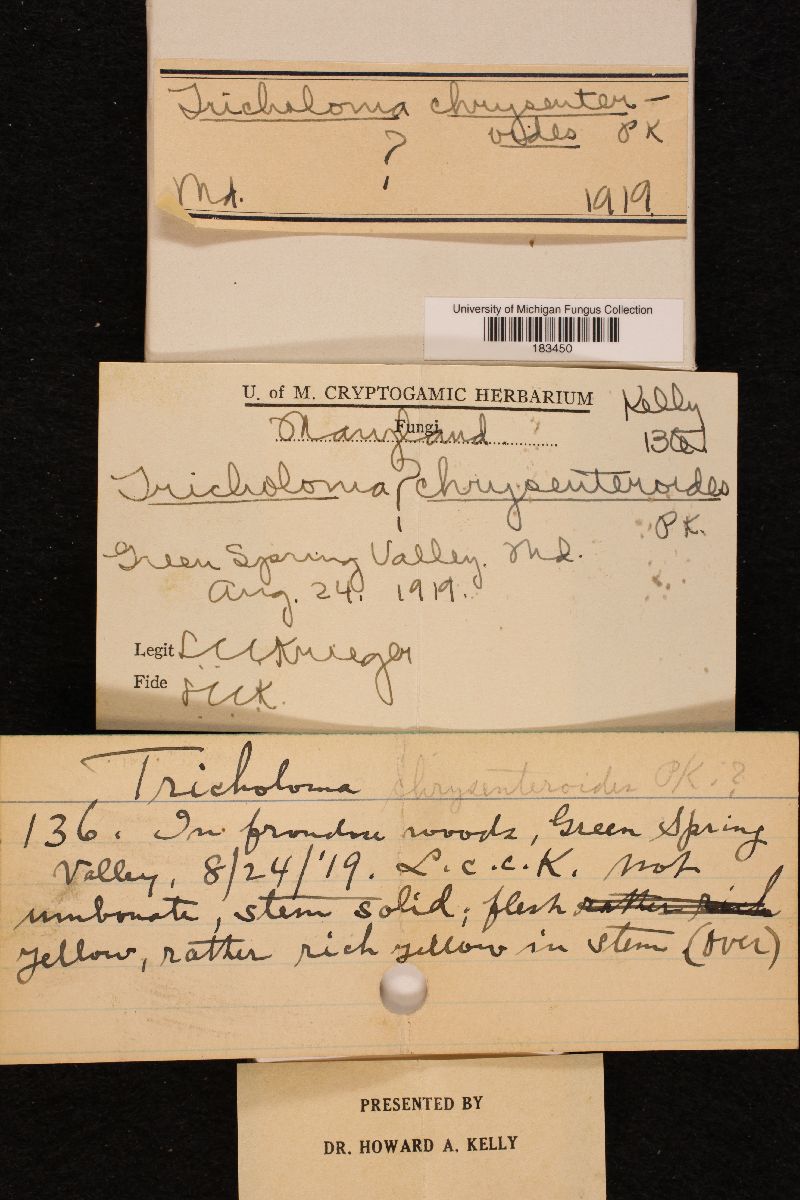 Tricholoma chrysenter-
oides PK
?
Md. 1919.
University of Michigan Fungus Collection
183450
U. of M. CRYPTOGAMIC HERBARIUM
Kelly
Fungi
Maryland
136
Tricholoma ? chrysenteroides
PK.
Green Spring Valley. Md.
Aug. 24. 1919.
Legit L C C Krieger
Fide LCCK.
Tricholoma chrysenteroides PK.?
136. In frondose woods, Green Spring
Valley, 8/24/'19. L.C.C.K. Not
umbonate, stem solid; flesh rather rich
yellow, rather rich yellow in stem (over)
PRESENTED BY
DR. HOWARD A. KELLY